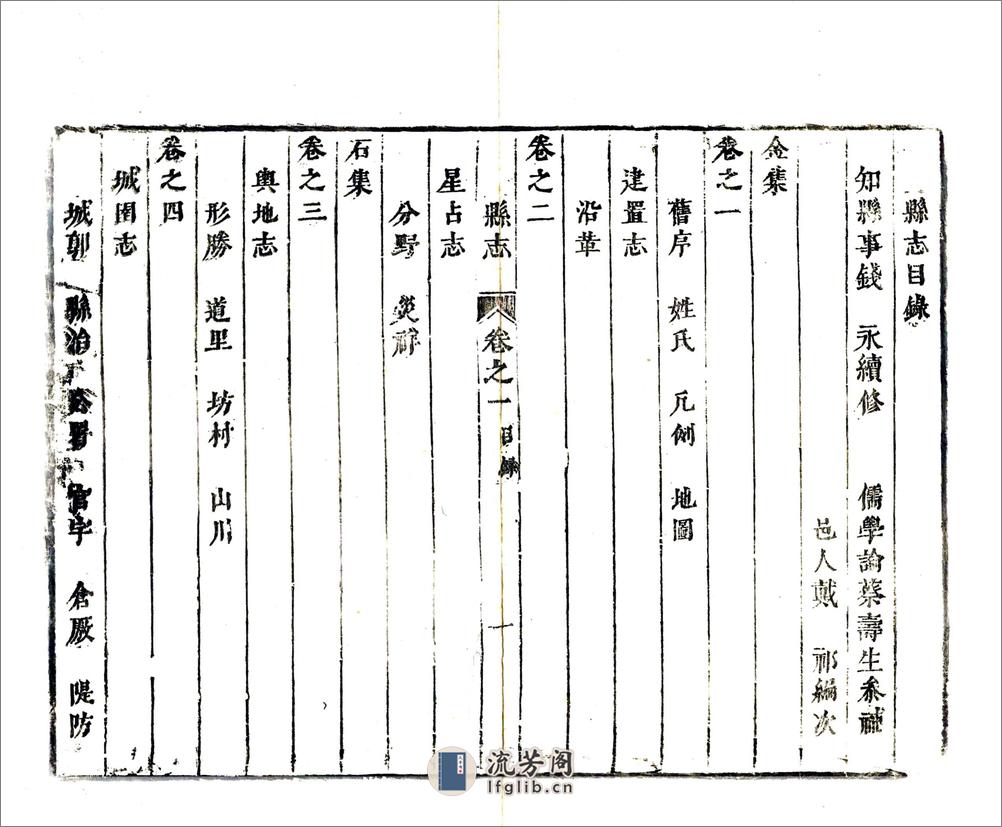 縣志目錄
知縣事錢 永續修 儒學諭蔡壽生參補
邑人戴 祁編次
金集
卷之一
舊序 姓氏 凡例 地圖
建置志
沿革
卷之二
縣志 卷之一 目錄 一
星占志
分野 災祥
石集
卷之三
輿地志
形勝 道里 坊村 山川
卷之四
城圍志
城郭 縣治 官宇 倉厫 隄防
流芳阁
lfglib.cn